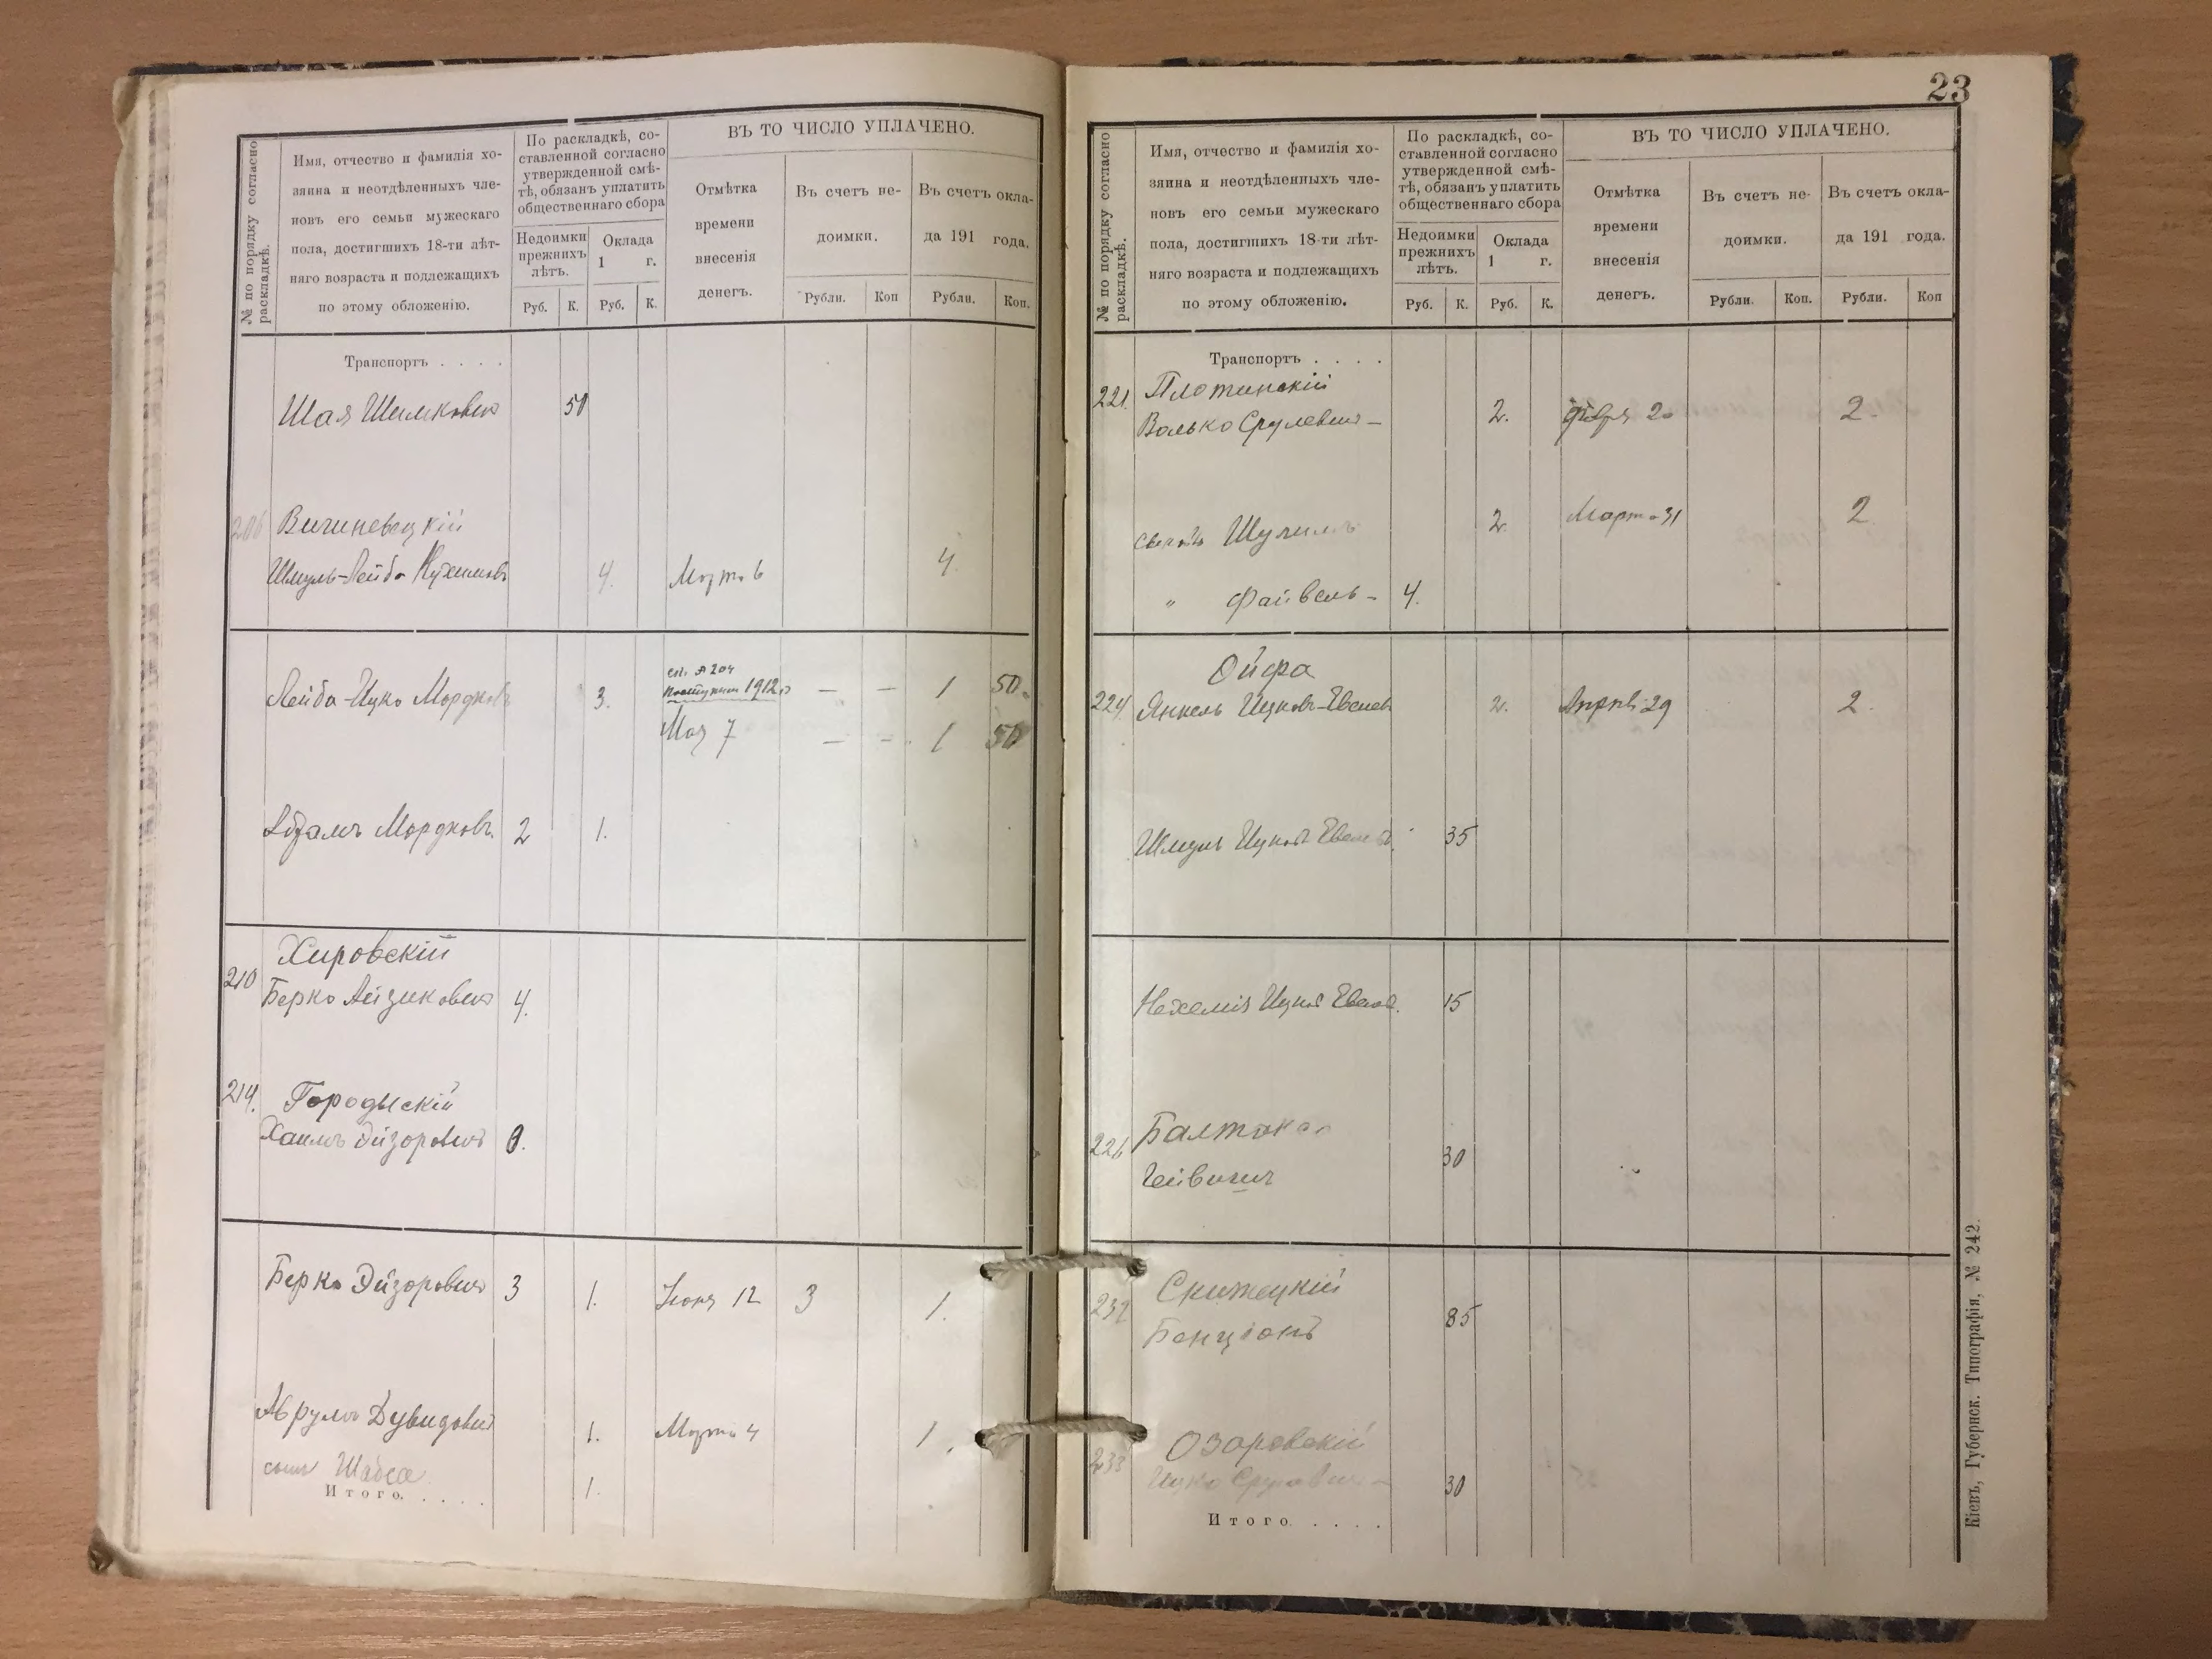 23
№ по порядку согласно раскладкѣ.
Имя, отчество и фамилія хо-
зяина и неотдѣленныхъ чле-
новъ его семьи мужескаго
пола, достигшихъ 18-ти лѣт-
няго возраста и подлежащихъ
по этому обложенію.
По раскладкѣ, со-
ставленной согласно
утвержденной смѣ-
тѣ, обязанъ уплатить
общественнаго сбора
Недоимки
прежнихъ
лѣтъ.
Оклада
1 г.
Руб. К. Руб. К.
ВЪ ТО ЧИСЛО УПЛАЧЕНО.
Отмѣтка
времени
внесенія
денегъ.
Въ счетъ не-
доимки.
Въ счетъ окла-
да 191 года.
Рубли. Коп Рубли. Коп.
Транспортъ . . . .
Шая 50
206
Шмуль-Лейба 4. Марта 6 4.
Лейба-Ицко Мордков 3. 1912 — — 1 50.
Мая 7 — — 1 50
Мордковъ. 2 1.
Хировскій
210 Берко Айзикович 4.
214. Городыскій
Хаимъ Эйзорович
Берко Эйзорович 3 1. Іюня 12 3 1.
Аврумъ Дувидович 1. Марта 4 1.
сынъ 1.
Итого. . . . .
№ по порядку согласно раскладкѣ.
Имя, отчество и фамилія хо-
зяина и неотдѣленныхъ чле-
новъ его семьи мужескаго
пола, достигшихъ 18-ти лѣт-
няго возраста и подлежащихъ
по этому обложенію.
По раскладкѣ, со-
ставленной согласно
утвержденной смѣ-
тѣ, обязанъ уплатить
общественнаго сбора
Недоимки
прежнихъ
лѣтъ.
Оклада
1 г.
Руб. К. Руб. К.
ВЪ ТО ЧИСЛО УПЛАЧЕНО.
Отмѣтка
времени
внесенія
денегъ.
Въ счетъ не-
доимки.
Въ счетъ окла-
да 191 года.
Рубли. Коп. Рубли. Коп
Транспортъ . . . .
221. Плотинскій
Волько Срулевич — 2. 20 2.
2. Март 31 2.
" Файвель - 4.
Ойфа
224. Янкель 2. Апрѣл 29 2.
Шмуль 35
Нехемія 15
226 30
232 85
Бенціонъ
233 Озаровскій
Ицко 30
Итого. . . . .
Кіевъ, Губернск. Типографія, № 242.